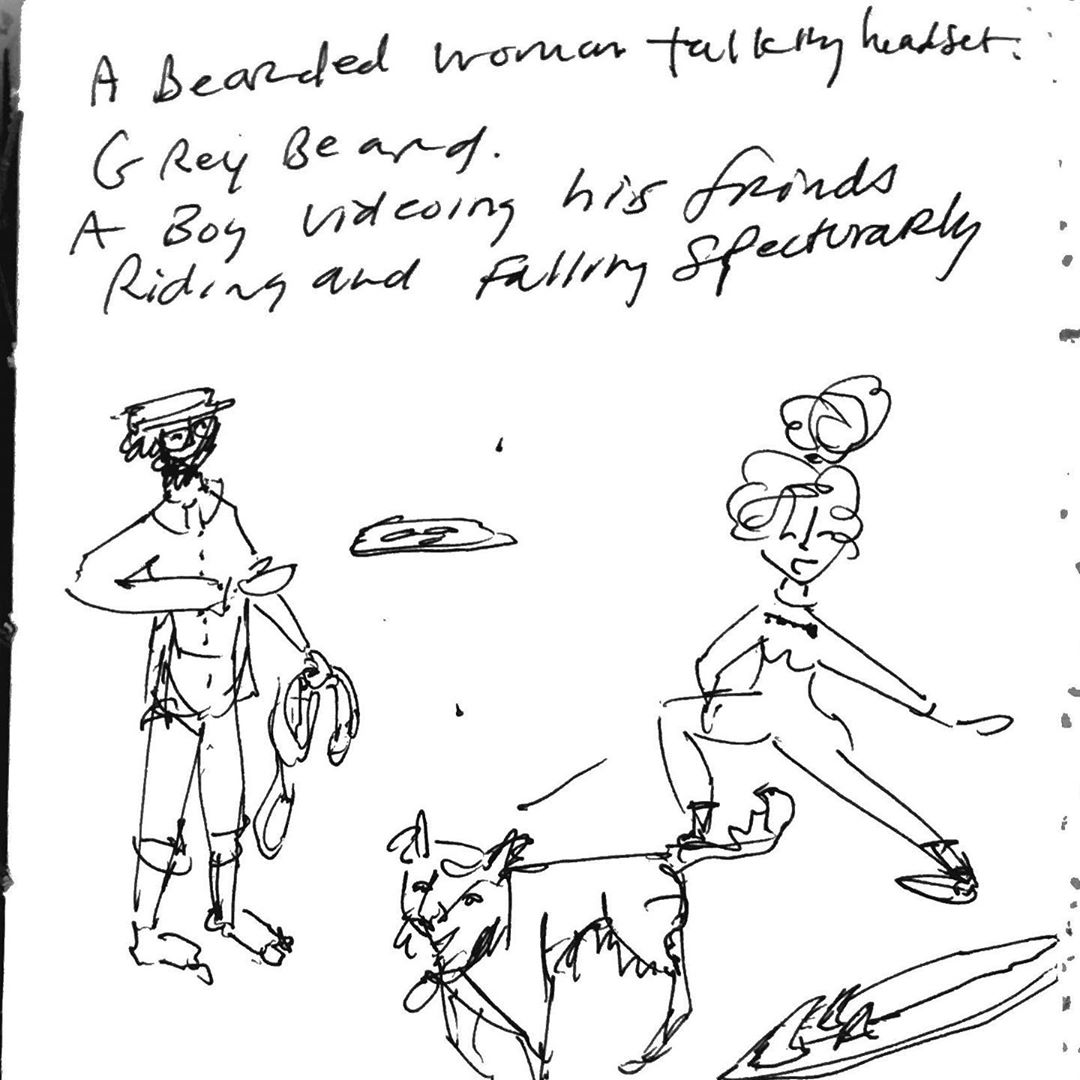 A Bearded woman talking headset.
Grey Beard.
A Boy videoing his frinds
Riding and Falling Specturarly